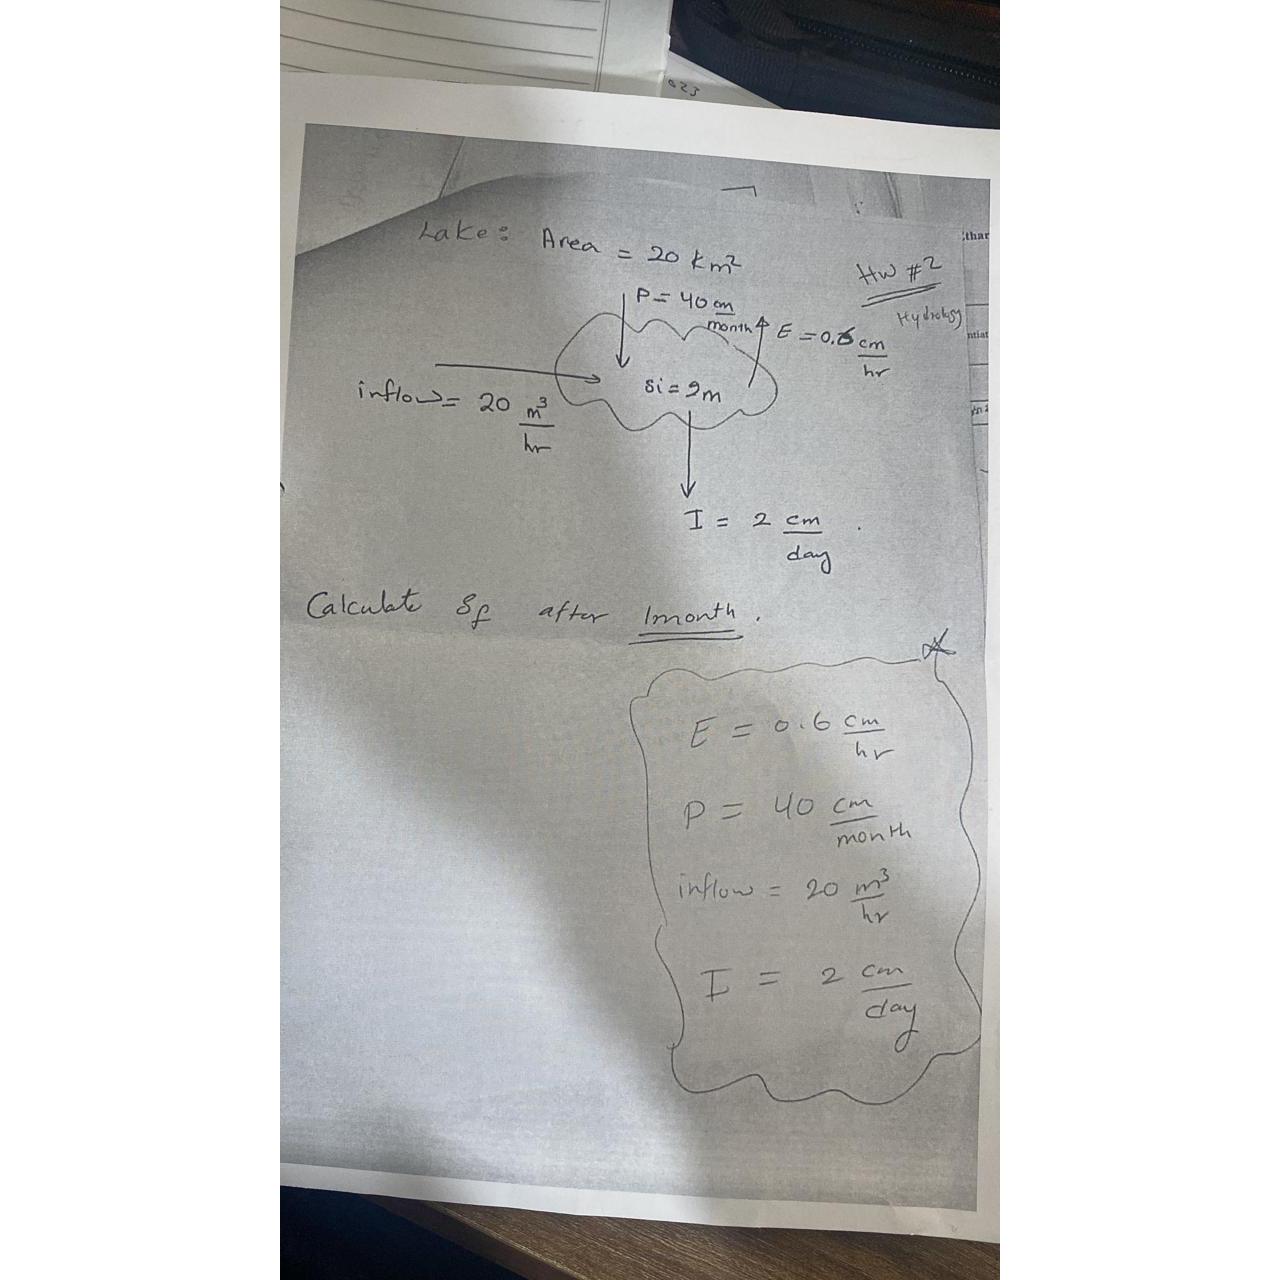 023
Lake: Area = 20 km²
HW #2
Hydrology
P = 40 cm/month
E = 0.6 cm/hr
inflow = 20 m³/hr
Si = 2m
I = 2 cm/day.
Calculate Sf after 1month.
E = 0.6 cm/hr
P = 40 cm/month
inflow = 20 m³/hr
I = 2 cm/day